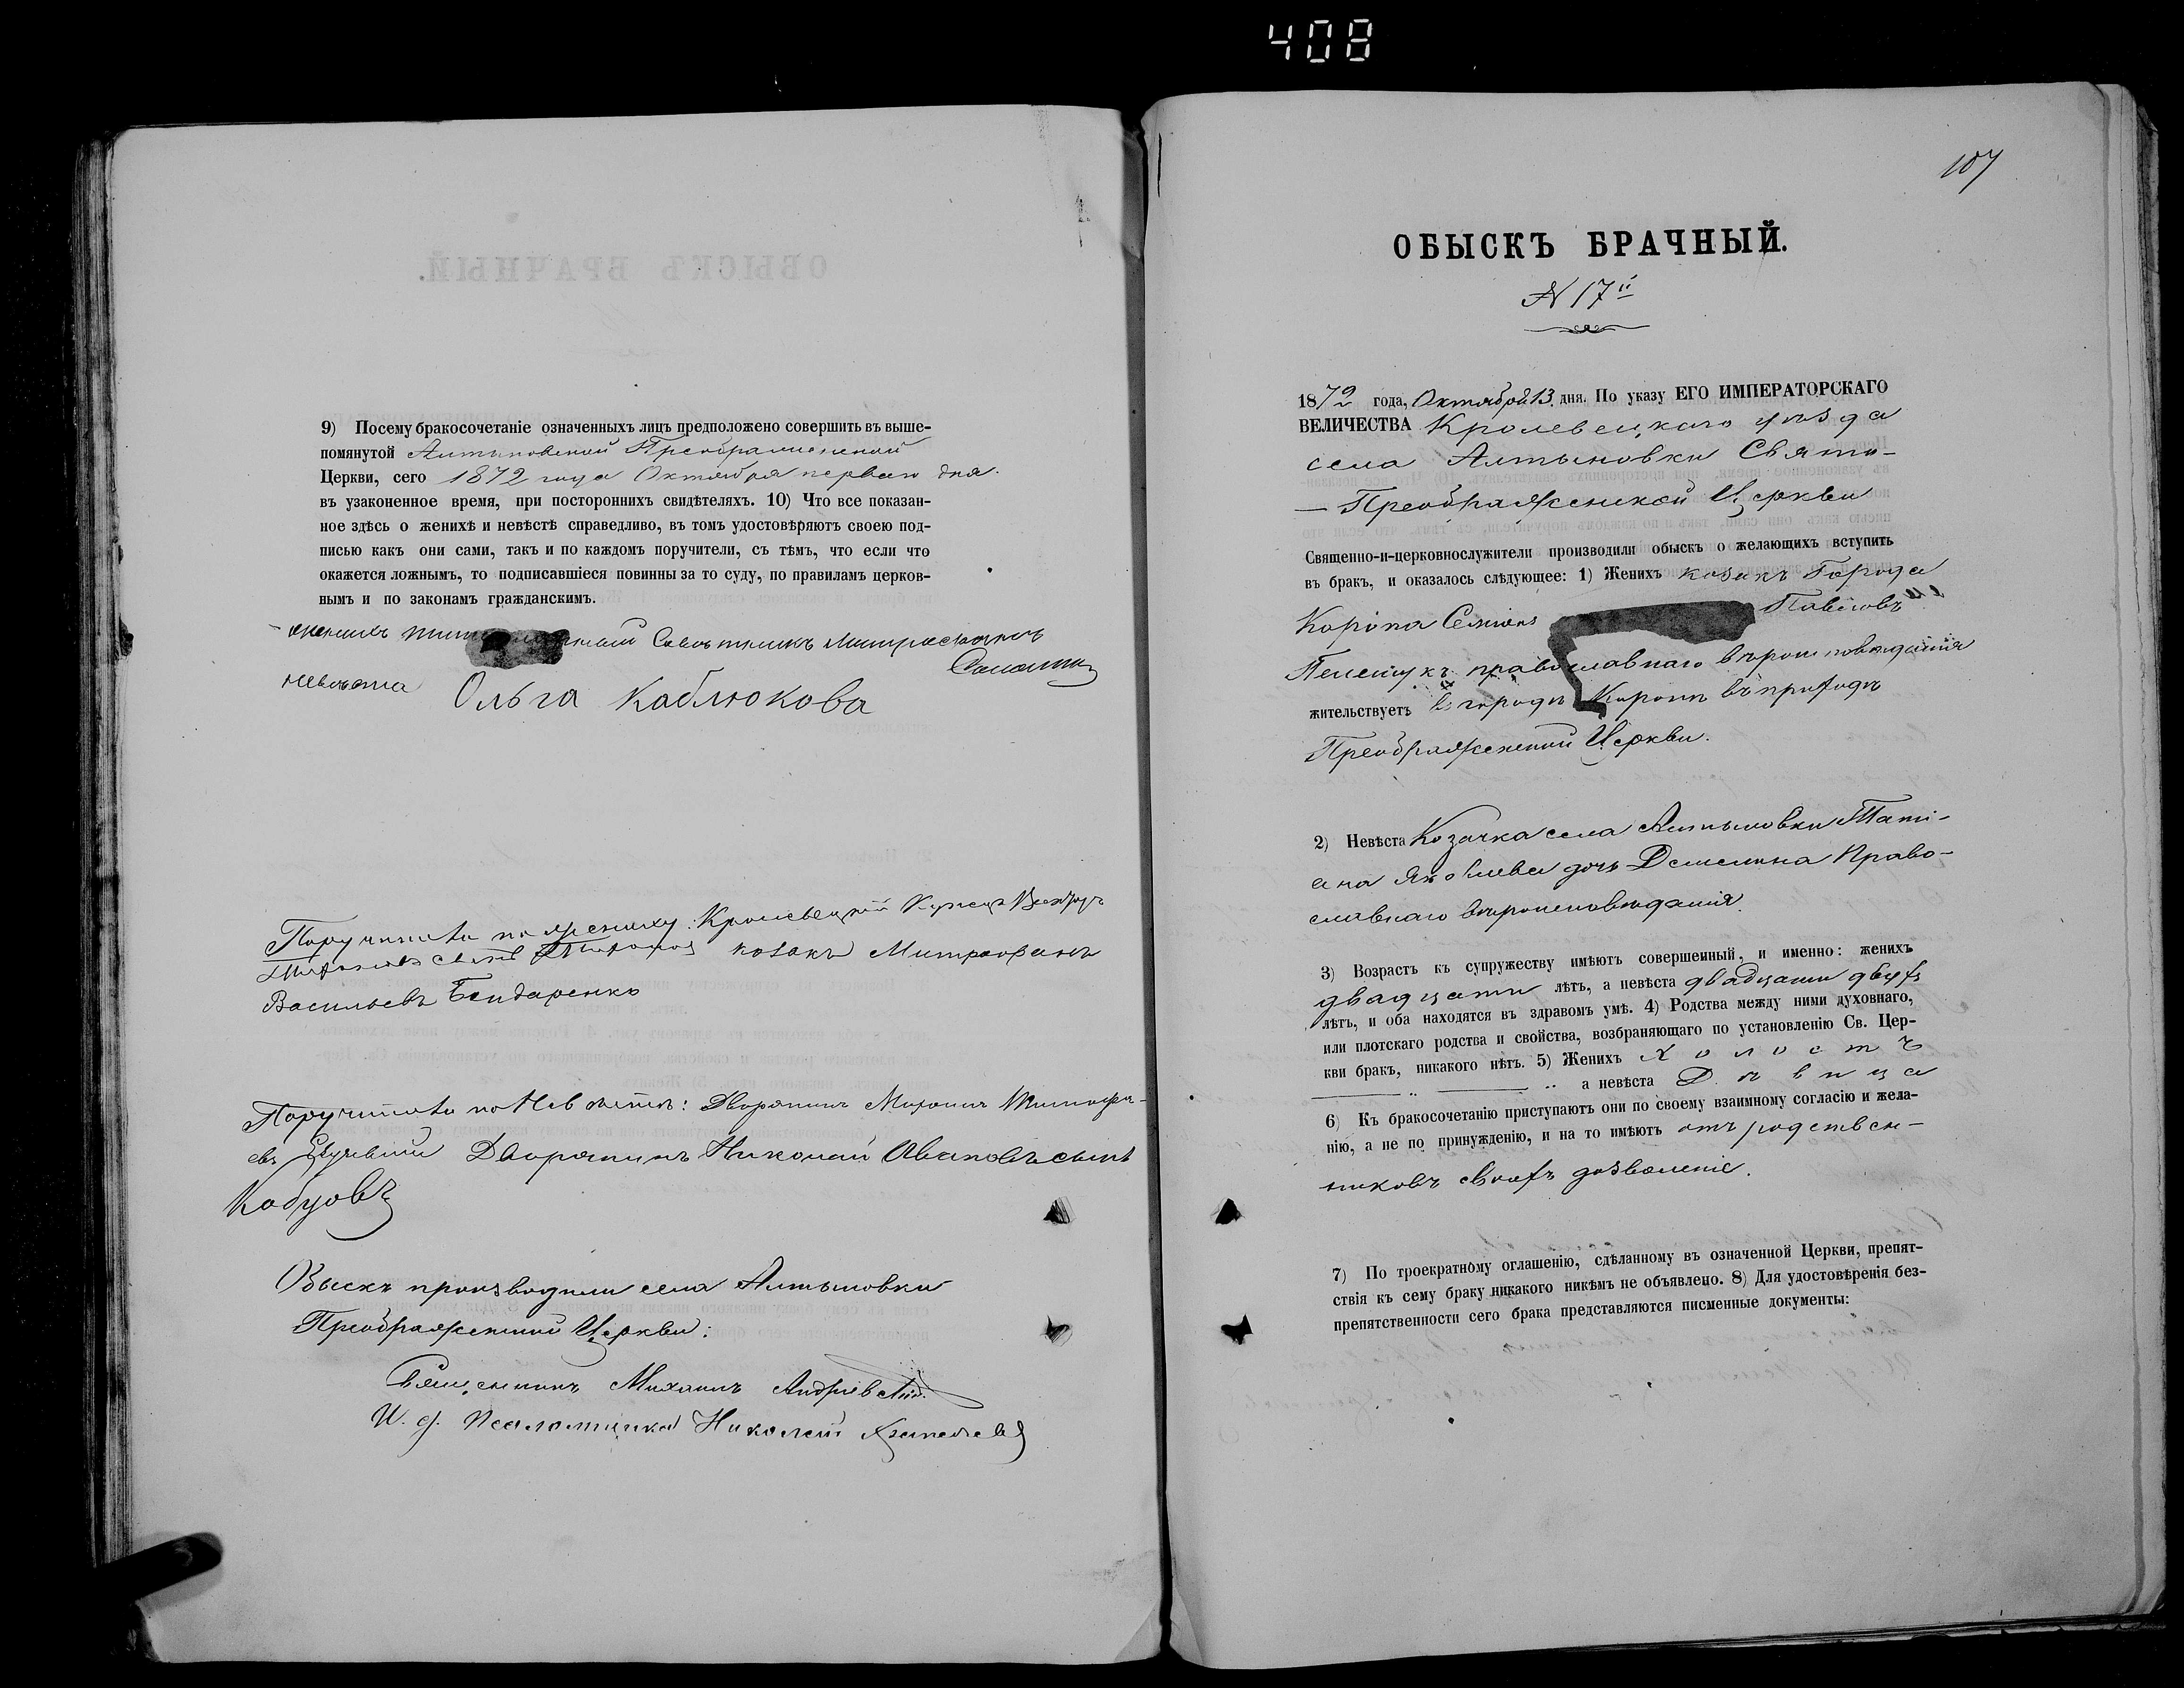 408
9) Посему бракосочетаніе означенныхъ лицъ предположено совершить въ выше-
помянутой Алтыновской Преображенской
Церкви, сего 1872 года Октября перваго дня.
въ узаконенное время, при постороннихъ свидѣтеляхъ. 10) Что все показан-
ное здѣсь о женихѣ и невѣстѣ справедливо, въ томъ удостовѣряютъ своею под-
писью какъ они сами, такъ и по каждомъ поручители, съ тѣмъ, что если что
окажется ложнымъ, то подписавшіеся повинны за то суду, по правиламъ церков-
нымъ и по законамъ гражданскимъ.
женихъ Совѣтникъ
невѣста Ольга Каблюкова
Поручители по женихѣ: Кролевецкій Купецъ
козакъ Митрофанъ
Васильевъ Бондаренко
Поручители по Невѣстѣ: Дворянинъ
Дворянинъ Николай Ивановъ сынъ
Кобцовъ
Обыскъ производили села Алтыновки
Преображенской Церкви:
Священникъ Михаилъ Андріевскій
И. д. Псаломщика Николай
107
ОБЫСКЪ БРАЧНЫЙ.
N 17й
1872 года, Октября 13 дня. По указу ЕГО ИМПЕРАТОРСКАГО
ВЕЛИЧЕСТВА Кролевецкаго уѣзда
села Алтыновки Свято-
— Преображенской Церкви
Священно-и-церковнослужители производили обыскъ о желающихъ вступить
въ бракъ, и оказалось слѣдующее: 1) Женихъ козакъ Города
Коропа Павловъ
православнаго вѣроисповѣданія
жительствуетъ въ городѣ Коропѣ въ приходѣ
Преображенской Церкви.
2) Невѣста Козачка села Алтыновки Таті-
ана Яковлева дочь Право-
славнаго вѣроисповѣданія.
3) Возрастъ къ супружеству имѣютъ совершенный, и именно: женихъ
двадцати лѣтъ, а невѣста двадцати двухъ
лѣтъ, и оба находятся въ здравомъ умѣ. 4) Родства между ними духовнаго,
или плотскаго родства и свойства, возбраняющаго по установленію Св. Цер-
кви бракъ, никакого нѣтъ. 5) Женихъ Холостъ
а невѣста Дѣвица
6) Къ бракосочетанію приступаютъ они по своему взаимному согласію и жела-
нію, а не по принужденію, и на то имѣютъ отъ родствен-
никовъ своихъ дозволеніе.
7) По троекратному оглашенію, сдѣланному въ означенной Церкви, препят-
ствія къ сему браку никакого никѣмъ не объявлено. 8) Для удостовѣренія без-
препятственности сего брака представляются писменные документы: